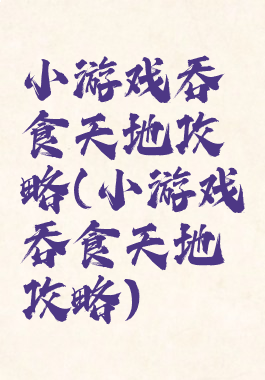 小游戏吞
食天地攻
略(小游戏
吞食天地
攻略)